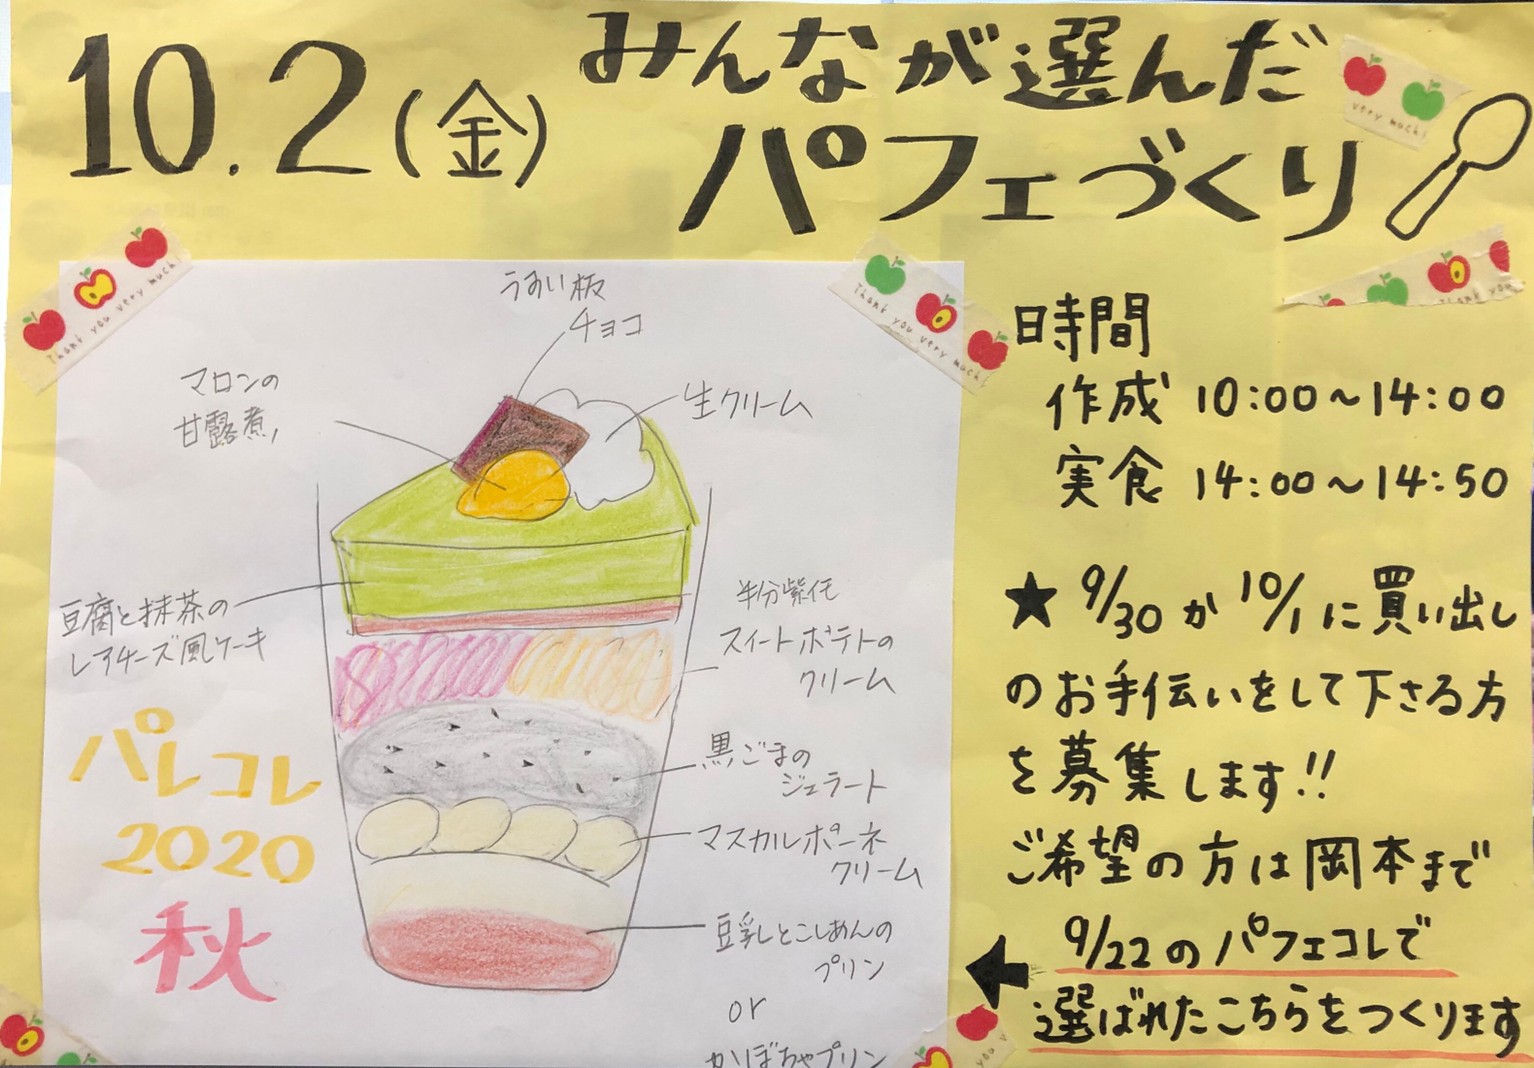 10.2(金)
みんなが選んだ
パフェづくり
very much!
Thank you very much!
Thank you very much
Thank you
うすい板
チョコ
マロンの
甘露煮
生クリーム
豆腐と抹茶の
レアチーズ風ケーキ
半分紫芋
スイートポテトの
クリーム
黒ごまの
ジェラート
マスカルポーネ
クリーム
豆乳とこしあんの
プリン
or
かぼちゃプリン
パレコレ
2020
秋
時間
作成 10:00~14:00
実食 14:00~14:50
★ 9/30か10/1に買い出し
のお手伝いをして下さる方
を募集します!!
ご希望の方は岡本まで
9/22のパフェコレで
選ばれたこちらをつくります
you v